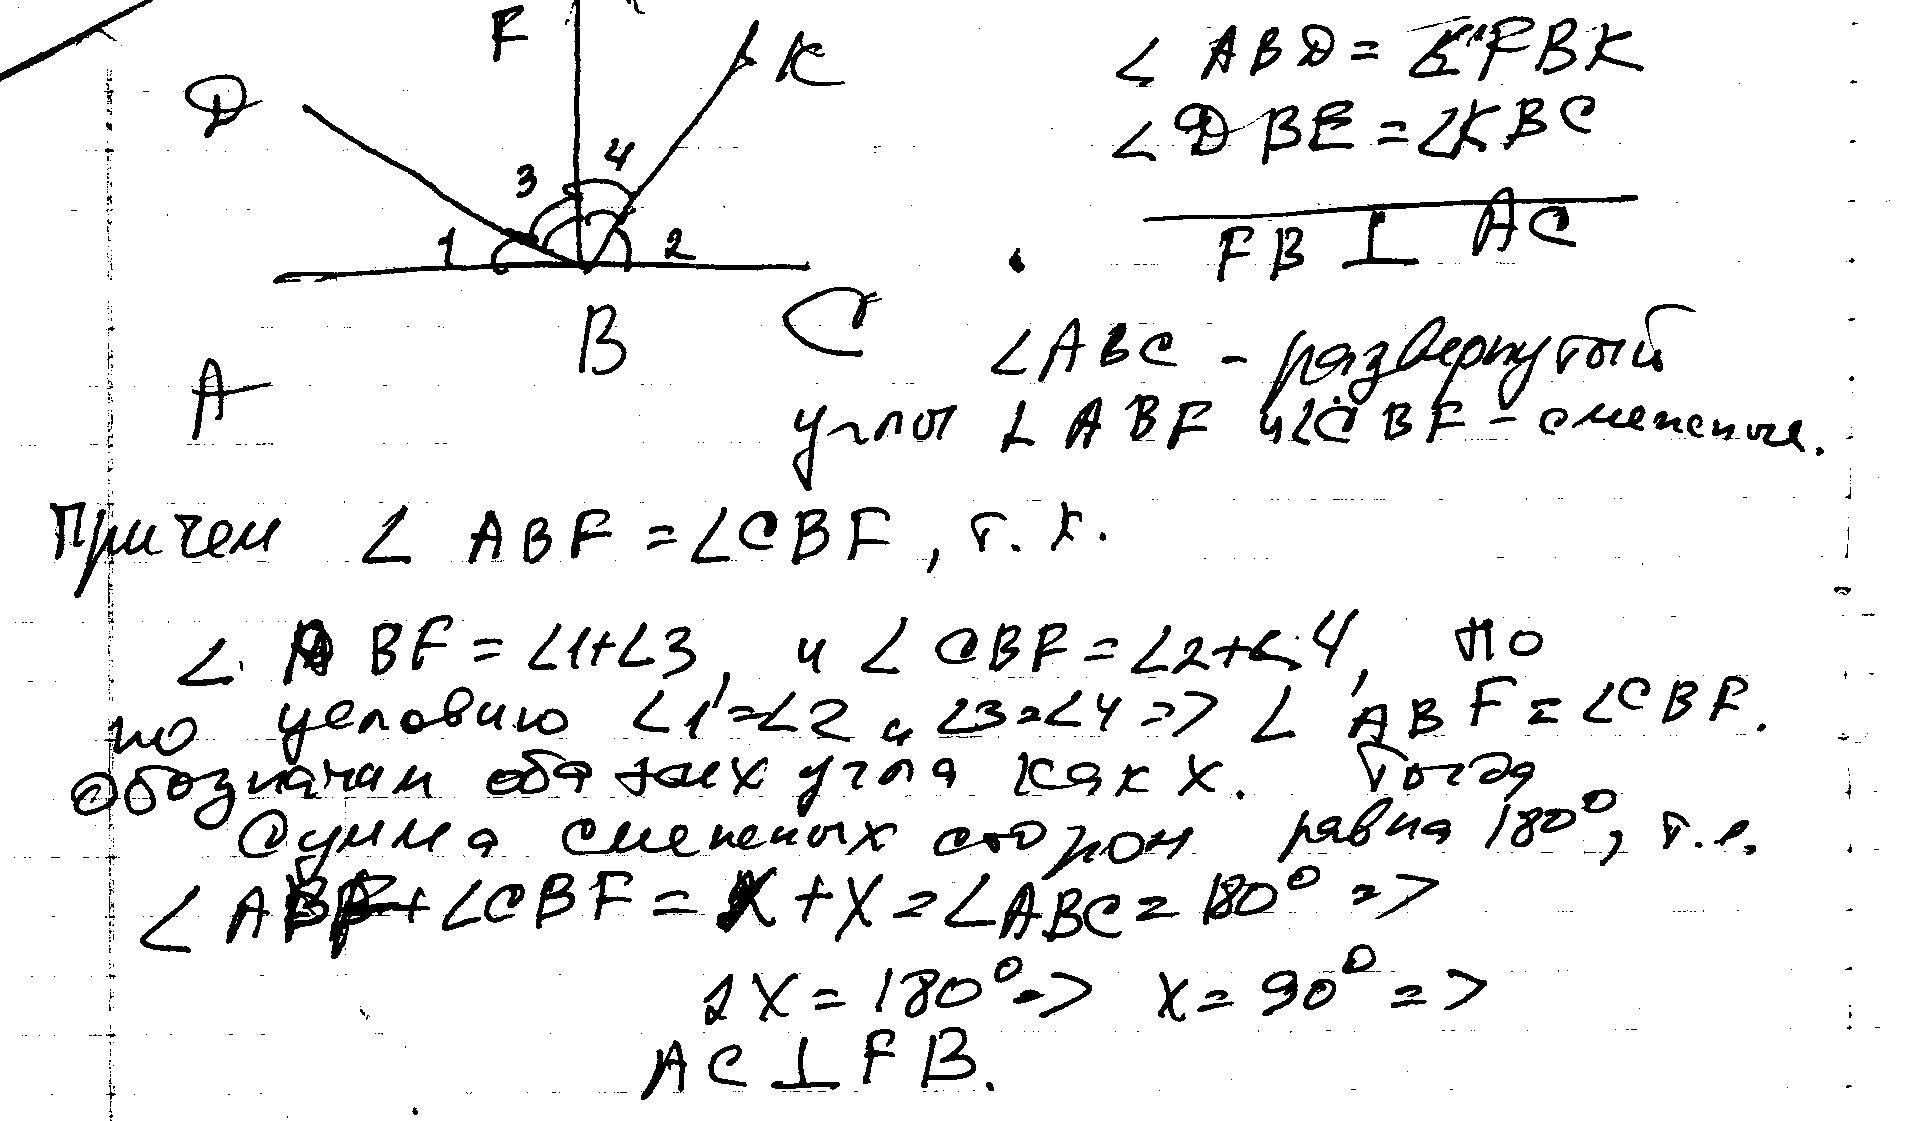 F
K
D
3
4
1
2
B
C
A
∠ ABD = ∠ FBK
∠DBE = ∠KBC
FB ⊥ AC
∠ABC - развернутый
углы ∠ ABF и ∠CBF - смежные.
Причем ∠ ABF = ∠CBF, т. к.
∠ ABF = ∠1+∠3, и ∠ CBF = ∠2+∠4, по
по условию ∠1 = ∠2 и ∠3=∠4 => ∠ ABF = ∠CBF.
Обозначим оба этих угла как x. Тогда
Сумма смежных сторон равна 180°, т.е.
∠ ABF + ∠CBF = X + X = ∠ABC = 180° =>
2X = 180° => X = 90° =>
AC ⊥ FB.